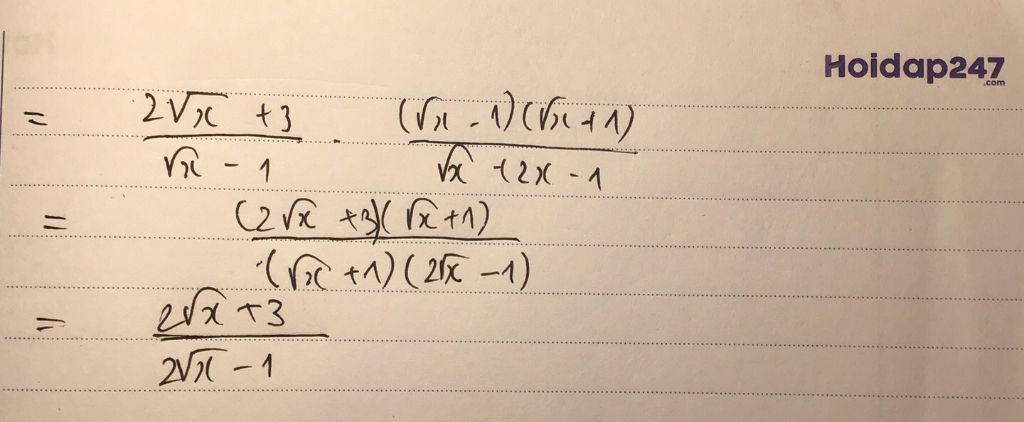 Hoidap247
.com
= (2√x + 3)/(√x - 1) . ((√x - 1)(√x + 1))/(√x + 2x - 1)
= ((2√x + 3)(√x + 1))/((√x + 1)(2√x - 1))
= (2√x + 3)/(2√x - 1)